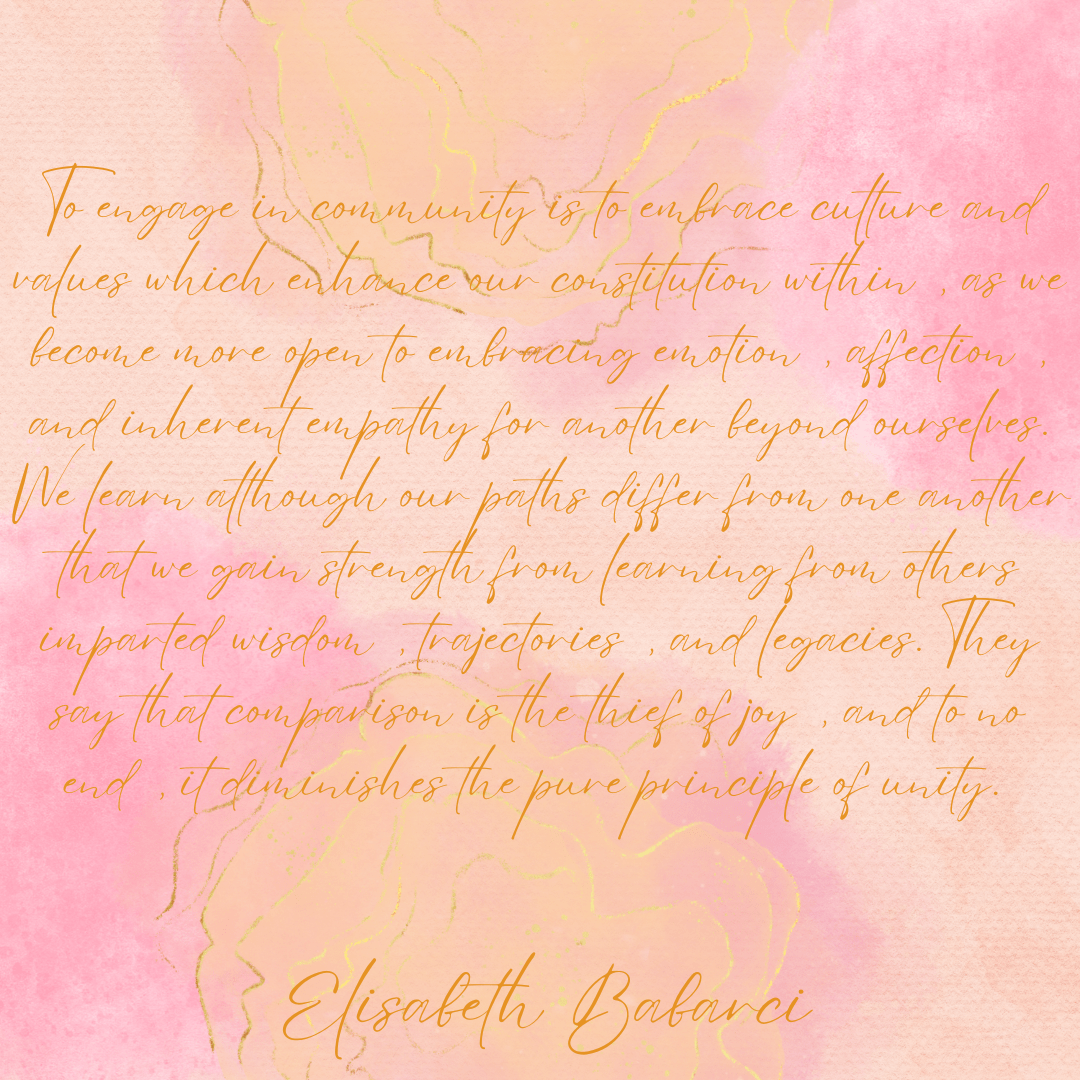 To engage in community is to embrace culture and
values which enhance our constitution within , as we
become more open to embracing emotion , affection ,
and inherent empathy for another beyond ourselves.
We learn although our paths differ from one another
that we gain strength from learning from others
imparted wisdom , trajectories , and legacies. They
say that comparison is the thief of joy , and to no
end , it diminishes the pure principle of unity.
Elisabeth Babarci